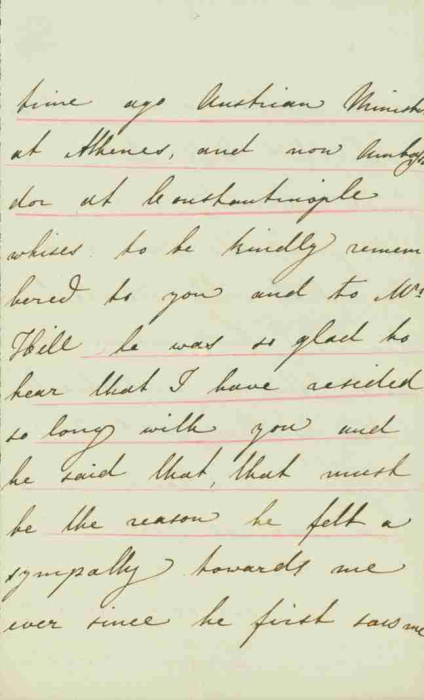 time ago Austrian Minist
at Athenes, and now Ambassa
dor at Constantinople
whises to be kindly remem
bered to you and to Mrs
Hill he was so glad to
hear that I have resided
so long with you and
he said that, that must
be the reason he felt a
sympathy towards me
ever since he first saw me